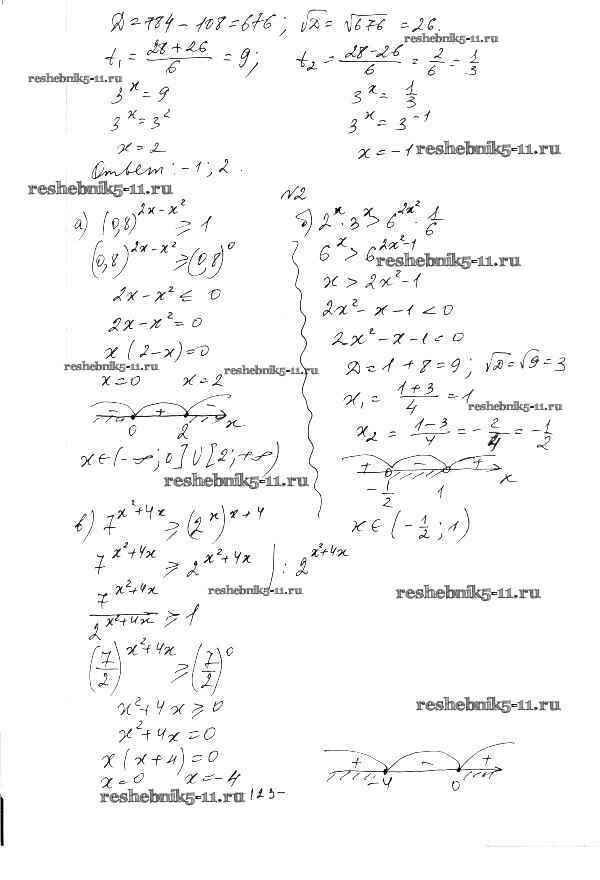 Д = 784 - 108 = 676; √Д = √676 = 26.
t₁ = (28+26)/6 = 9; t₂ = (28-26)/6 = 2/6 = 1/3
reshebnik5-11.ru
3^x = 9 3^x = 1/3
3^x = 3^2 3^x = 3^-1
x = 2 x = -1 reshebnik5-11.ru
Ответ: -1; 2.
reshebnik5-11.ru
№2
а) (0,8)^(2x-x²) ≥ 1
(0,8)^(2x-x²) ≥ (0,8)^0
2x - x² ≤ 0
2x - x² = 0
x(2-x) = 0
reshebnik5-11.ru reshebnik5-11.ru
x = 0 x = 2
- + -
0 2 x
x ∈ (-∞; 0] ∪ [2; +∞)
reshebnik5-11.ru
б) 2^x · 3^x > 6^(2x²) · 1/6
6^x > 6^(2x²-1)
reshebnik5-11.ru
x > 2x² - 1
2x² - x - 1 < 0
2x² - x - 1 = 0
Д = 1 + 8 = 9; √Д = √9 = 3
x₁ = (1+3)/4 = 1
reshebnik5-11.ru
x₂ = (1-3)/4 = -2/4 = -1/2
+ - +
-1/2 1 x
x ∈ (-1/2; 1)
в) 7^(x²+4x) ≥ (2^x)^(x+4)
7^(x²+4x) ≥ 2^(x²+4x) | : 2^(x²+4x)
7^(x²+4x)/2^(x²+4x) ≥ 1
reshebnik5-11.ru reshebnik5-11.ru
(7/2)^(x²+4x) ≥ (7/2)^0
x² + 4x ≥ 0
reshebnik5-11.ru
x² + 4x = 0
x(x+4) = 0
x = 0 x = -4
+ - +
-4 0
reshebnik5-11.ru 123-